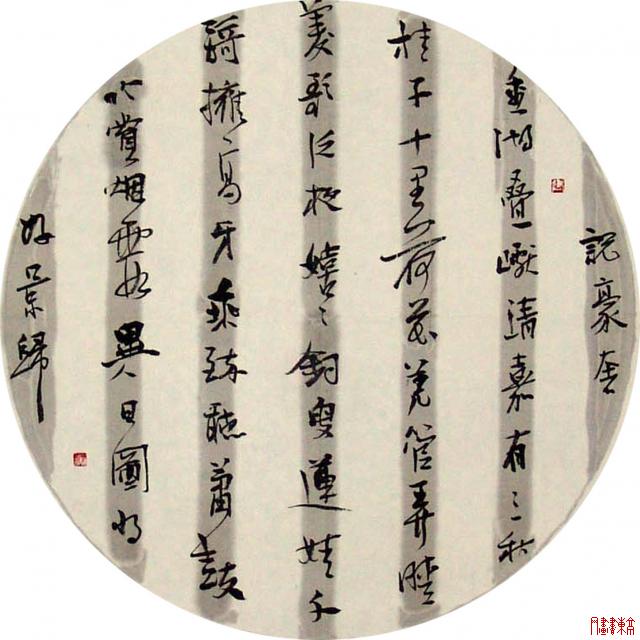 競豪奢
重湖疊巘清嘉有三秋
桂子十里荷花羌管弄晴
菱歌泛夜嬉〻釣叟蓮娃千
騎擁高牙乘醉聽簫鼓
吟賞烟霞異日圖將
好景歸